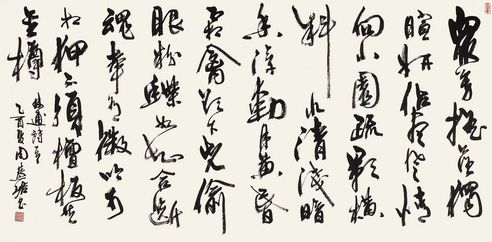 眾芳摇落獨
暄妍佔盡風情
向小園疏影橫
斜水清淺暗
香浮動月黃昏
霜禽欲下先偷
眼粉蝶如知合斷
魂幸有微吟可
相狎不須檀板共
金樽
林逋詩
乙酉夏周慧珺书